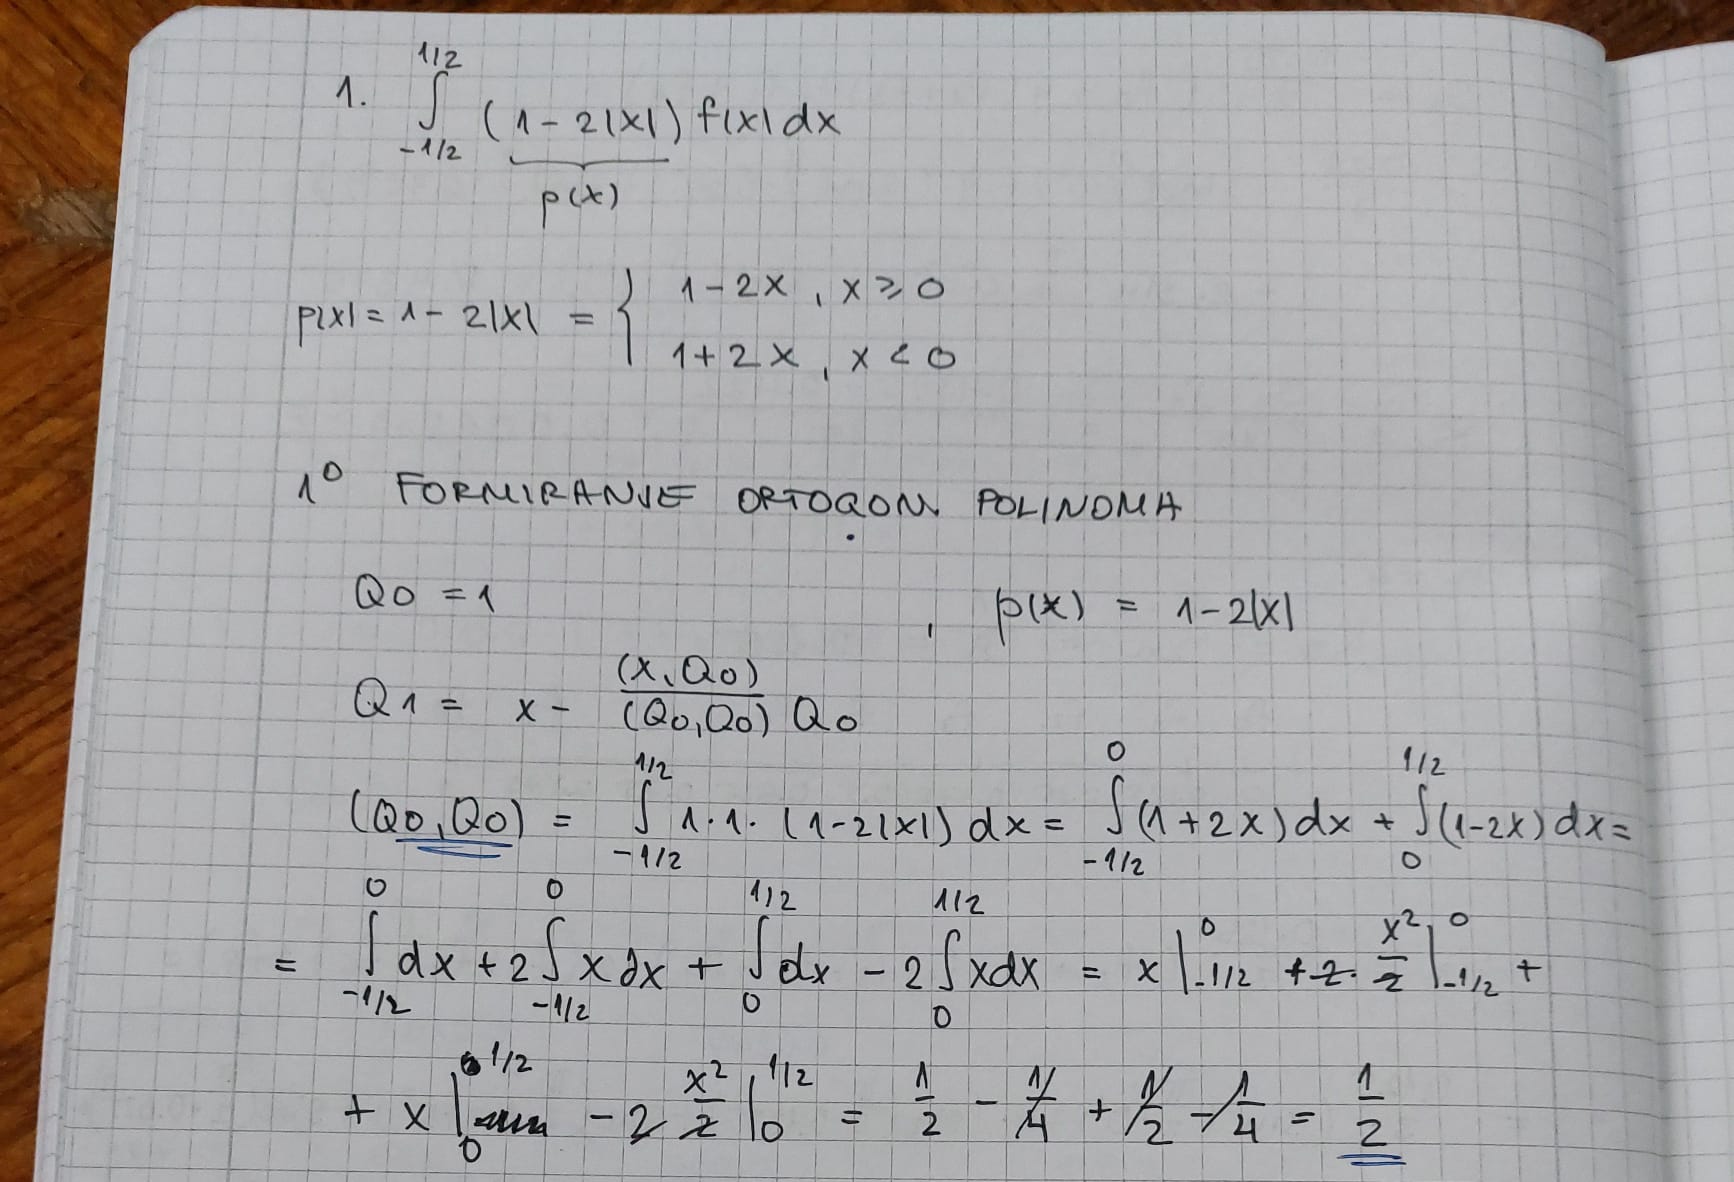 1. ∫_{-1/2}^{1/2} (1-2|x|) f(x) dx
p(x)
p(x) = 1-2|x| = { 1-2x, x ≥ 0
1+2x, x < 0
1° FORMIRANJE ORTOGON. POLINOMA
Q0 = 1 , p(x) = 1-2|x|
Q1 = x - (x,Q0)/(Q0,Q0) Q0
(Q0,Q0) = ∫_{-1/2}^{1/2} 1·1·(1-2|x|) dx = ∫_{-1/2}^{0} (1+2x) dx + ∫_{0}^{1/2} (1-2x) dx =
= ∫_{-1/2}^{0} dx + 2 ∫_{-1/2}^{0} x dx + ∫_{0}^{1/2} dx - 2 ∫_{0}^{1/2} x dx = x |_{-1/2}^{0} + 2· x²/2 |_{-1/2}^{0} +
+ x |_{0}^{1/2} - 2 x²/2 |_{0}^{1/2} = 1/2 - 1/4 + 1/2 - 1/4 = 1/2